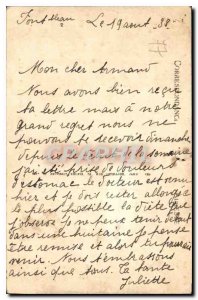 Font bleau Le 19 août 38
Mon cher Armand
Nous avons bien reçu
ta lettre mais à notre
grand regret nous ne
pouvons te recevoir dimanche
depuis le
j'ai été prise de douleurs
d'estomac le docteur est venu
hier et je dois rester allongée
le plus possible la diète que
j'observe je ne peux tenir debout
dans une huitaine je pense
être remise et alors tu pourras
venir. Nous t'embrassons
ainsi que tous. Ta tante
Juliette
CORRESPONDANCE